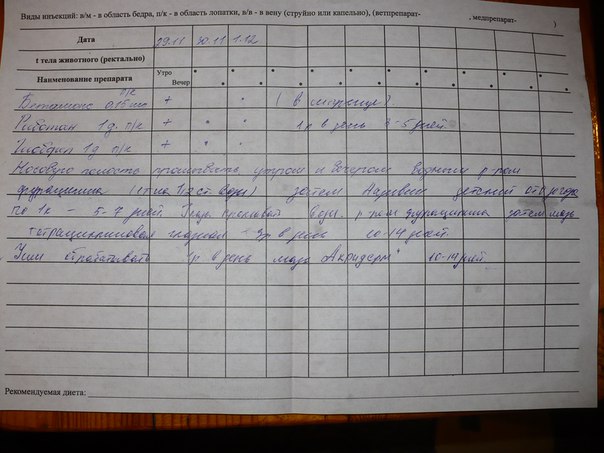 Виды инъекций: в/м - в область бедра, п/к - в область лопатки, в/в - в вену (струйно или капельно), (ветпрепарат- , медпрепарат- )
Дата 29.11 30.11 1.12
t тела животного (ректально)
Наименование препарата Утро Вечер
п/к
0.15 + " " ( в шприце).
Риботан 1д. п/к + " " 1р в день 3-5 дней.
1д п/к + " "
Носовую полость промывать утром и вечером водным р-ром
фурацилина (1т на 1/2 ст. воды) затем детский
по 1к 5-7 дней. р-ром фурацилина затем мазь
тетрациклиновая глазная 3р в день 10-14 дней.
Уши обрабатывать 1р в день мазь "Акридерм" 10-14 дней
Рекомендуемая диета: